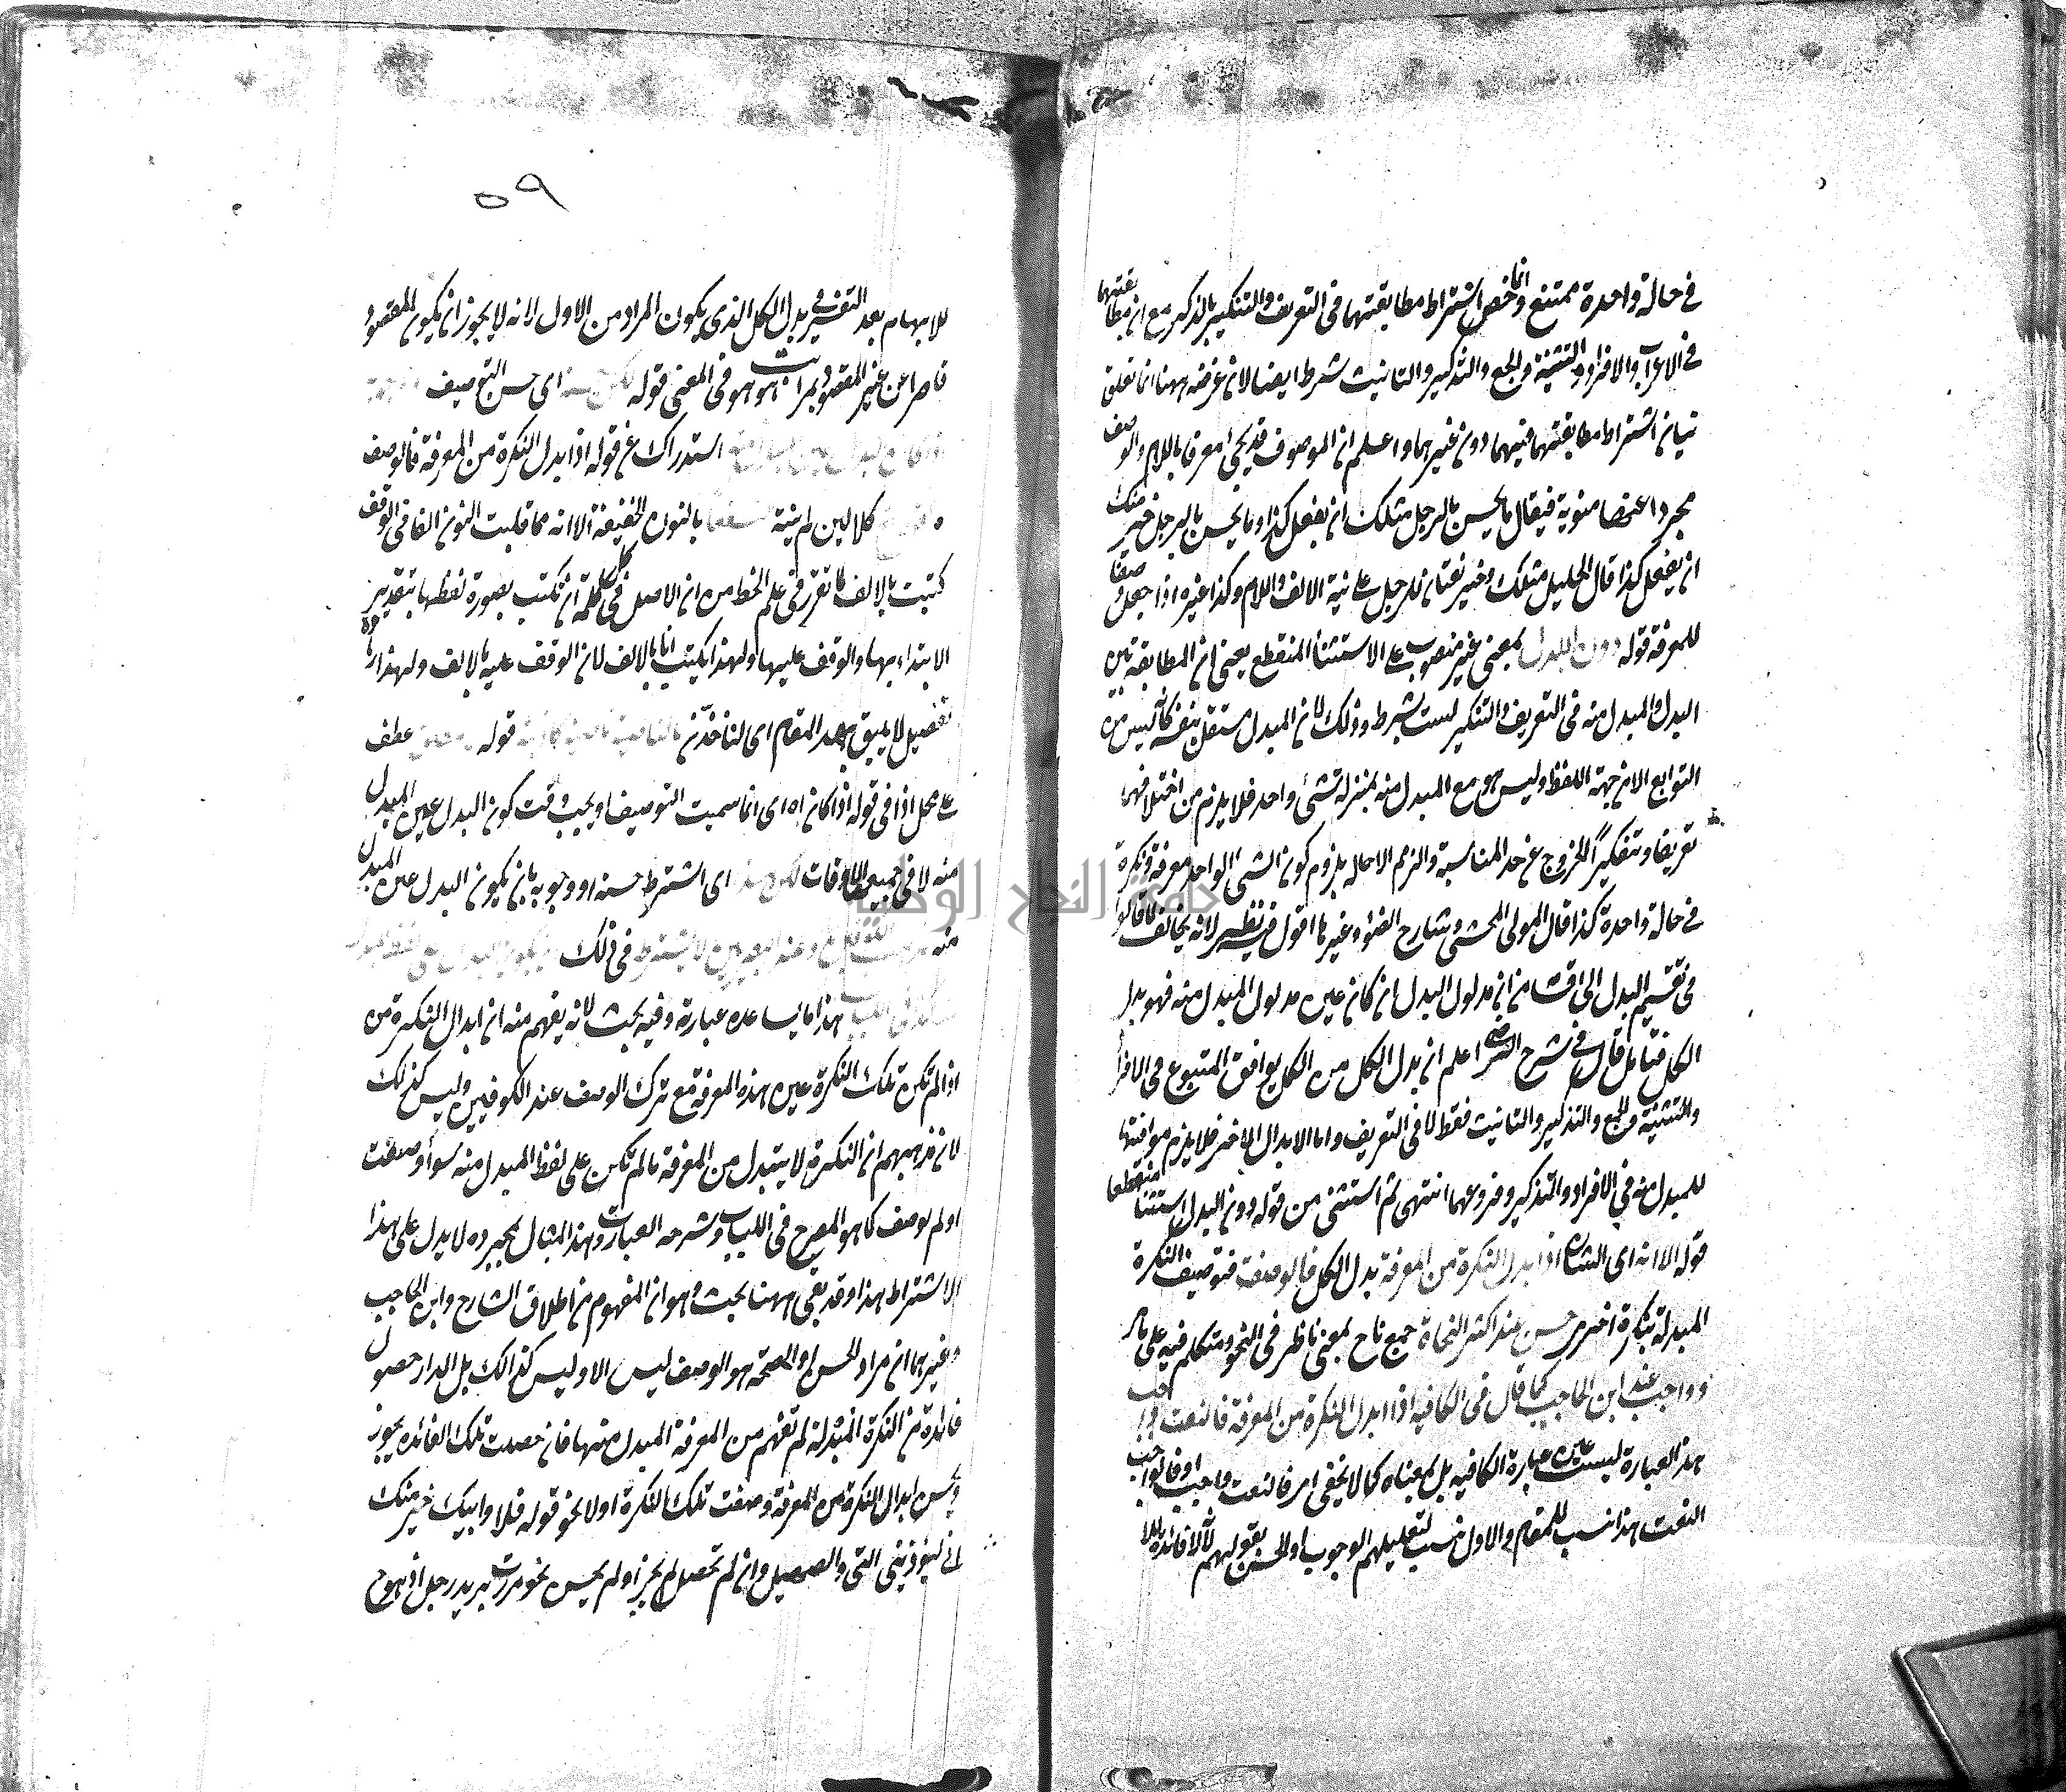 في حالة واحدة ممتنع وانما خص اشتراط مطابقتهما في التعريف والتنكير بالذكر مع ان مطابقتهما
في الاعراب والافراد والتثنية والجمع والتذكير والتانيث شرط ايضا لان غرضه ههنا انما تعلق
ببيان اشتراط مطابقتهما فيهما دون غيرهما واعلم ان الموصوف قد يجئ معرفا باللام والوصف
مجردا عنها منوية فيقال ما يحسن بالرجل مثلك ان يفعل كذا وما يحسن بالرجل خير منك
ان يفعل كذا قال الخليل مثلك وخير نعتان للرجل على نية الالف واللام وكذا غيره اذا جعل وصفا
للمعرفة قوله دون البدل بمعنى غير منصوب على الاستثناء المنقطع يعني ان المطابقة بين
البدل والمبدل منه في التعريف والتنكير ليست بشرط وذلك لان البدل مستقل بنفسه كانه ليس من
التوابع الا من جهة اللفظ وليس هو مع المبدل منه بمنزلة شئ واحد فلا يلزم من اختلافهما
تعريفا وتنكيرا الخروج عن حد المناسبة والزم الاحالة بلزوم كون الشئ الواحد معرفة ونكرة
في حالة واحدة كذا قال المولى المحشي وشارح الضوء وغيرهما اقول فيه نظر لانه يخالف لما قالوا
في تقسيم البدل الى اقسامه ان مدلول البدل ان كان عين مدلول المبدل منه فهو بدل
الكل فتامل قال في شرح الرضي اعلم ان بدل الكل من الكل يوافق المتبوع في الافراد
والتثنية والجمع والتذكير والتانيث فقط لا في التعريف واما الابدال الاخر فلا يلزم موافقتها
للمبدل منه في الافراد والتذكير وفروعهما انتهى ثم استثنى من قوله دون البدل استثناء منقطعا
قوله الا انه اي الشان اذا ابدل النكرة من المعرفة بدل الكل فالوصف فتوصيف النكرة
المبدلة بنكرة اخرى حسن عند اكثر النحاة جمع ناح بمعنى ناظر في النحو ومتكلم فيه على
وواجب عند ابن الحاجب كما قال في الكافيه اذا ابدل النكرة من المعرفة فالنعت واجب
هذه العبارة ليست عين عبارة الكافيه بل بمعناه كما لا يخفى امر فالنعت واجب او فالواجب
النعت هذا انسب للمقام والاول نسب لتعليلهم الوجوب او الحسن بقولهم لان لا فائدة بالا
٥٩
للابهام بعد التفسير في بدل الكل الذي يكون المراد من الاول لانه لا يجوز ان يكون المقصود
قاصرا عن غير المقصود بمراتب هو هو في المعنى قوله اي حسن التوصيف
استدراك عن قوله اذا بدل النكرة من المعرفة فالوصف
كلا لئن لم ينته بالنون الخفيفة الا انه مما قلبت النون الفا في الوقف
كتبت بالالف لما تقرر في علم الخط من ان الاصل في كل كلمة ان تكتب بصورة لفظها بتقدير
الابتداء بها والوقف عليها ولهذا يكتب انا بالالف لان الوقف عليه بالالف ولهذا
تفصيل لا يليق بهذا المقام اي لناخذن بالناصية ناصية كاذبة قوله عطف
على محل اذا في قوله اذا كان اه اي انما سميت التوصيف او يجب وقت كون البدل عين المبدل
منه لا في جميع الاوقات اي اشترط حسنه او وجوبه بان يكون البدل عين المبدل
منه وعند البصريين لا يشترط في ذلك
هذا ما يساعده عبارته وفيه بحث لانه يفهم منه ان ابدال النكرة من
اذا لم تكن تلك النكرة عين هذه المعرفة مع ترك الوصف عند الكوفيين وليس كذلك
لان مذهبهم ان النكرة لا يتبدل من المعرفة ما لم تكن على لفظ المبدل منه سواء وصفت
او لم توصف كما هو المصرح في اللباب وشرحه العباب وهذا المثال بمجرده لا يدل على هذا
الاشتراط هذا وقد بقي ههنا بحث وهو ان المفهوم من اطلاق الشارح وابن الحاجب
وغيرهما ان مراد الحسن او الصحة هو الوصف ليس الا وليس كذالك بل المدار حصول
فائدة من النكرة المبدلة لم تفهم من المعرفة المبدل منها فان حصلت تلك الفائدة يجوز
ويحسن ابدال النكرة من المعرفة وصفت تلك النكرة او لا نحو قوله فلا وابيك خير منك
اني ليؤذيني التحمحم والصهيل وان لم تحصل لم يجز او لم يحسن نحو مررت بزيد رجل اذ هو ح